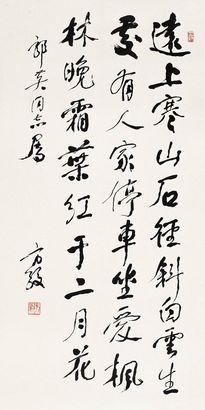 遠上寒山石徑斜白雲生
處有人家停車坐愛楓
林晚霜葉紅于二月花
郭英同志屬
方毅